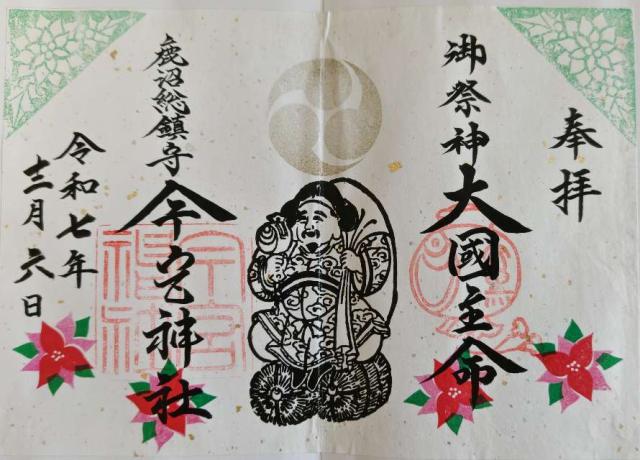 奉拝
御祭神大國主命
鹿沼総鎮守今宮神社
令和七年
十二月六日
今宮神社